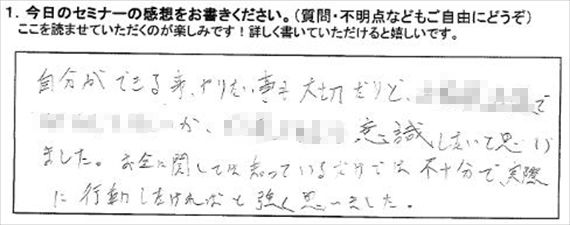 1. 今日のセミナーの感想をお書きください。(質問・不明点などもご自由にどうぞ)
ここを読ませていただくのが楽しみです！詳しく書いていただけると嬉しいです。
自分ができる事、やりたい事も大切だけど、で
か、意識したいと思い
ました。お金に関しては知っているだけでは不十分で実際
に行動しなければと強く思いました。